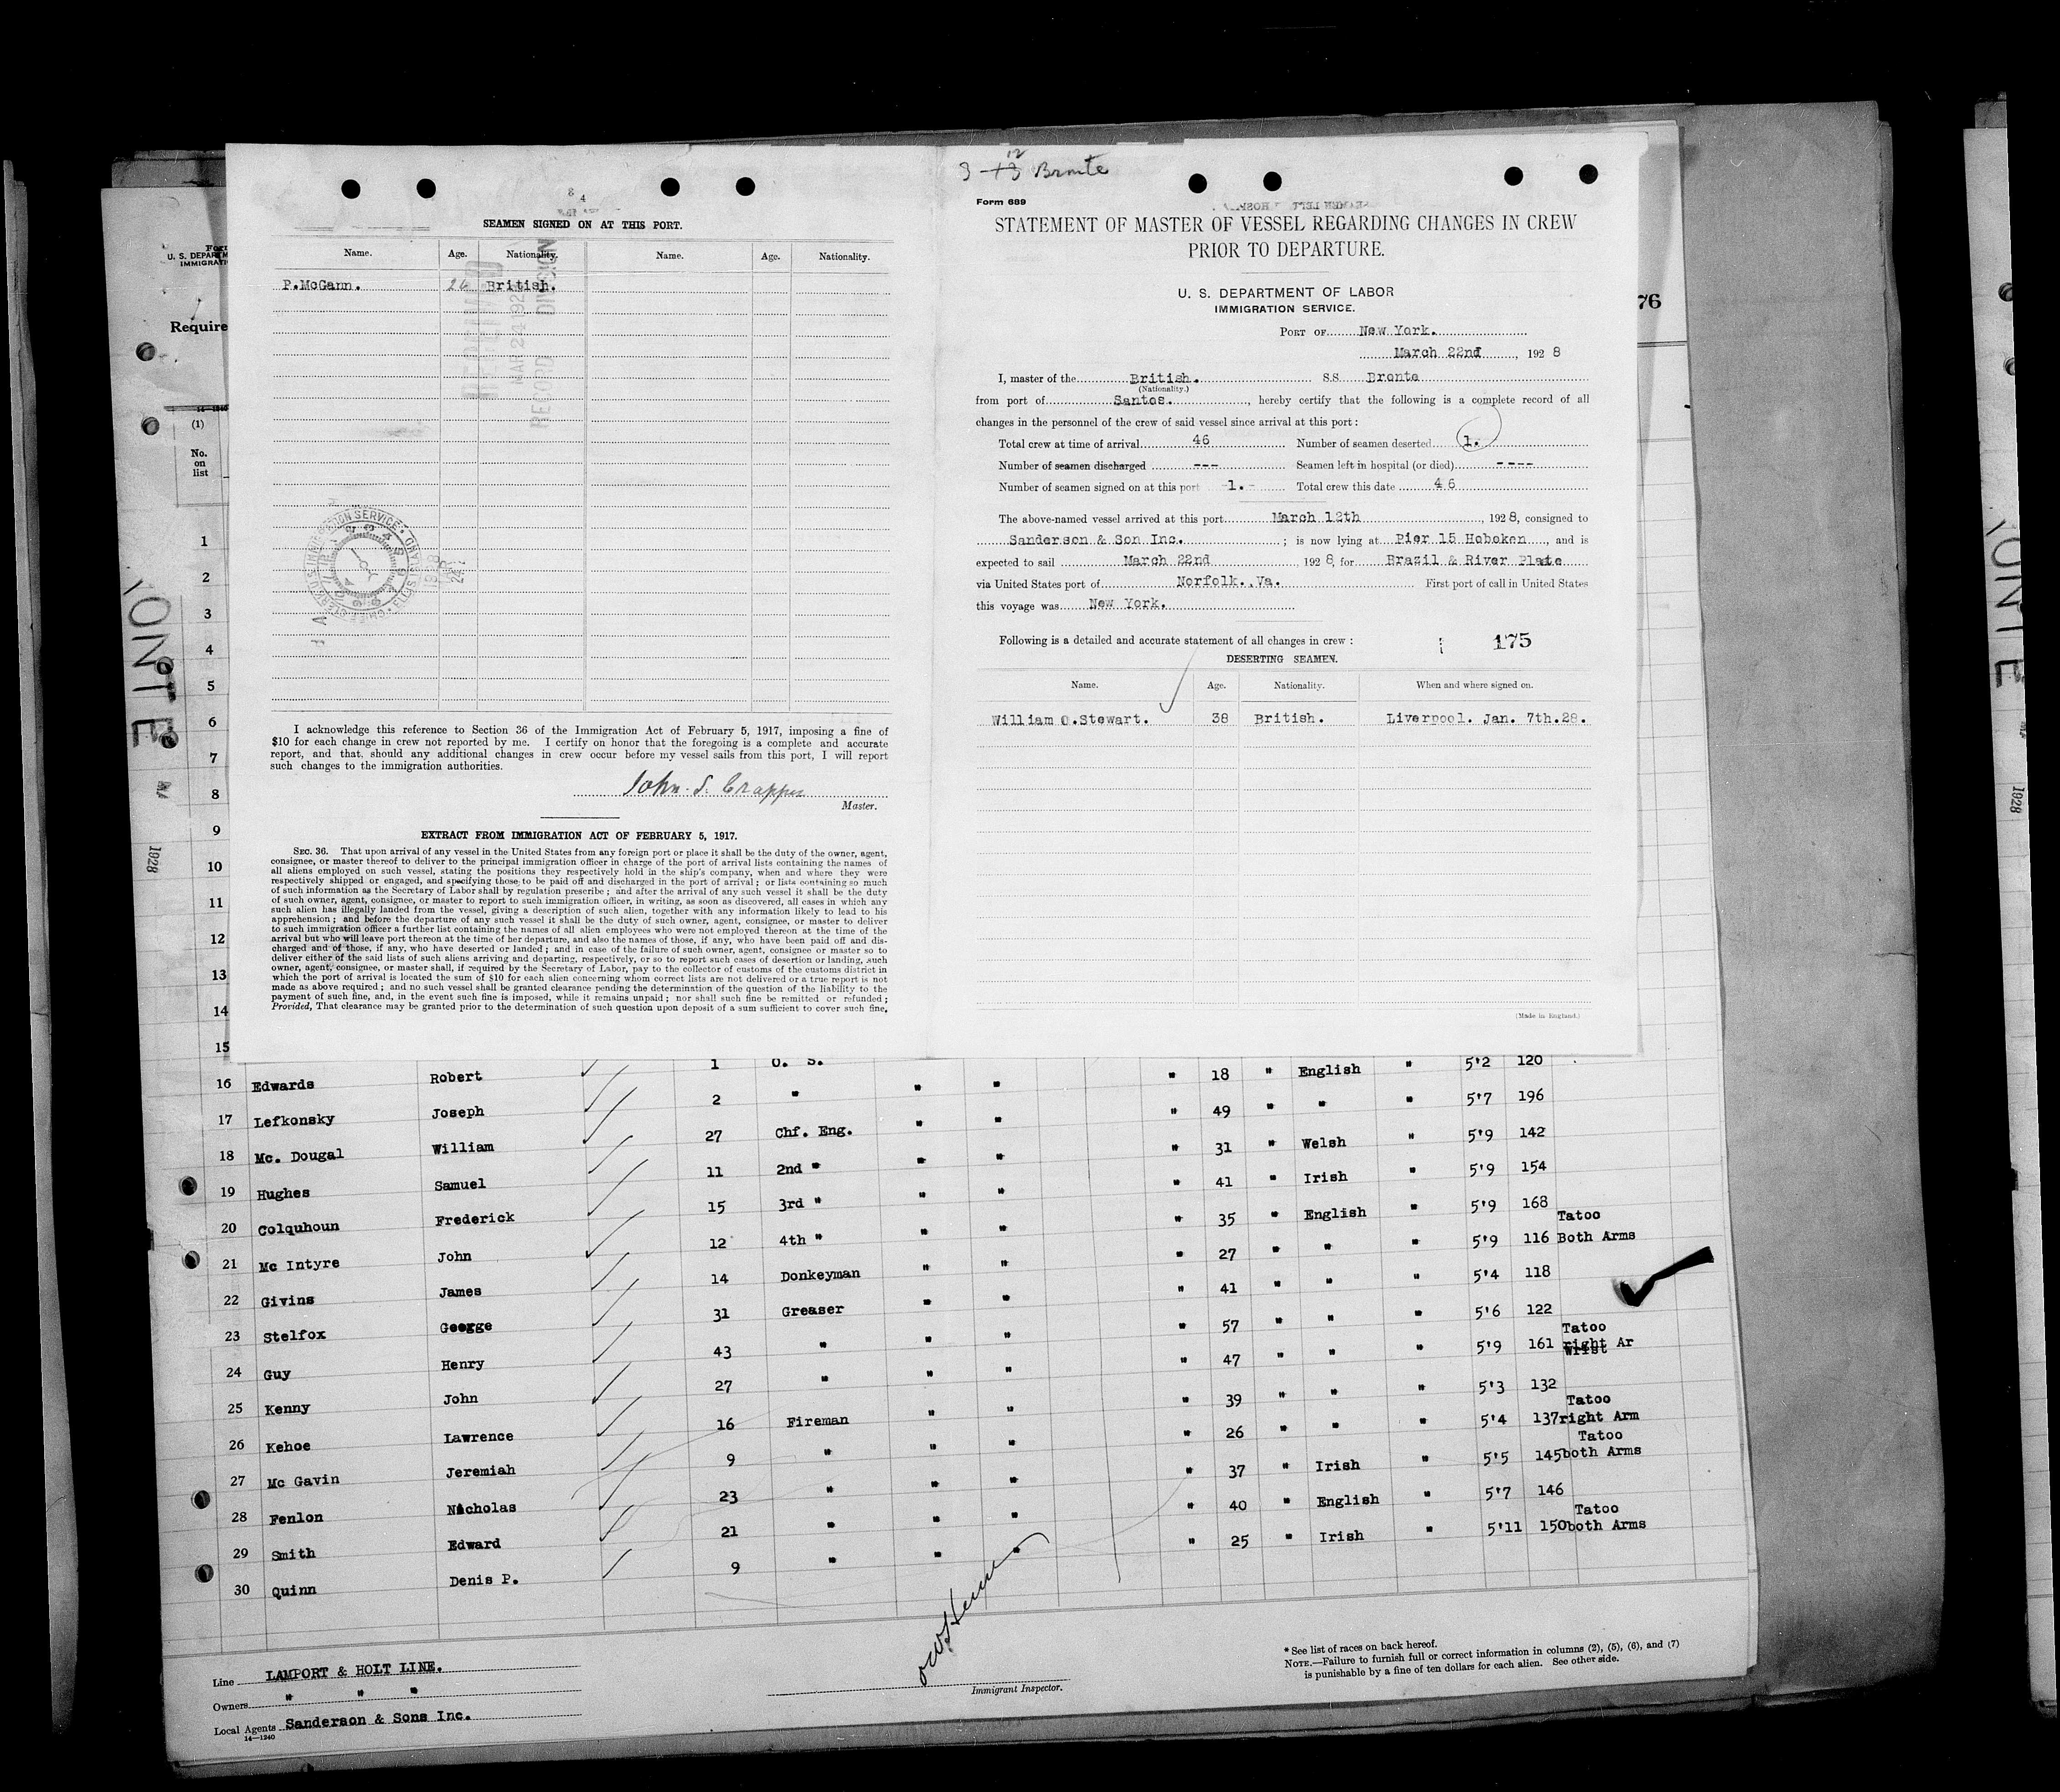 SEAMEN SIGNED ON AT THIS PORT.
Name. Age. Nationality. Name. Age. Nationality.
P.McGann. 26 British.
I acknowledge this reference to Section 36 of the Immigration Act of February 5, 1917, imposing a fine of
$10 for each change in crew not reported by me. I certify on honor that the foregoing is a complete and accurate
report, and that should any additional changes in crew occur before my vessel sails from this port, I will report
such changes to the immigration authorities.
John S. Crapper
Master.
EXTRACT FROM IMMIGRATION ACT OF FEBRUARY 5, 1917.
SEC. 36. That upon arrival of any vessel in the United States from any foreign port or place it shall be the duty of the owner, agent,
consignee, or master thereof to deliver to the principal immigration officer in charge of the port of arrival lists containing the names of
all aliens employed on such vessel, stating the positions they respectively hold in the ship's company, when and where they were
respectively shipped or engaged, and specifying those to be paid off and discharged in the port of arrival; or lists containing so much
of such information as the Secretary of Labor shall by regulation prescribe; and after the arrival of any such vessel it shall be the duty
of such owner, agent, consignee, or master to report to such immigration officer, in writing, as soon as discovered, all cases in which any
such alien has illegally landed from the vessel, giving a description of such alien, together with any information likely to lead to his
apprehension; and before the departure of any such vessel it shall be the duty of such owner, agent, consignee, or master to deliver
to such immigration officer a further list containing the names of all alien employees who were not employed thereon at the time of the
arrival but who will leave port thereon at the time of her departure, and also the names of those, if any, who have been paid off and dis-
charged and of those, if any, who have deserted or landed; and in case of the failure of such owner, agent, consignee or master so to
deliver either of the said lists of such aliens arriving and departing, respectively, or so to report such cases of desertion or landing, such
owner, agent, consignee, or master shall, if required by the Secretary of Labor, pay to the collector of customs of the customs district in
which the port of arrival is located the sum of $10 for each alien concerning whom correct lists are not delivered or a true report is not
made as above required; and no such vessel shall be granted clearance pending the determination of the question of the liability to the
payment of such fine, and, in the event such fine is imposed, while it remains unpaid; nor shall such fine be remitted or refunded;
Provided, That clearance may be granted prior to the determination of such question upon deposit of a sum sufficient to cover such fine,
RECORD DIVISION
3-13 12 Bronte
Form 689
STATEMENT OF MASTER OF VESSEL REGARDING CHANGES IN CREW
PRIOR TO DEPARTURE.
U. S. DEPARTMENT OF LABOR
IMMIGRATION SERVICE.
PORT OF New York.
March 22nd, 1928
I, master of the British. S.S. Bronte
(Nationality.)
from port of Santos., hereby certify that the following is a complete record of all
changes in the personnel of the crew of said vessel since arrival at this port:
Total crew at time of arrival 46 Number of seamen deserted 1.
Number of seamen discharged --- Seamen left in hospital (or died) ----
Number of seamen signed on at this port -1.- Total crew this date 46
The above-named vessel arrived at this port March 12th, 1928, consigned to
Sanderson & Son Inc.; is now lying at Pier 15 Hoboken, and is
expected to sail March 22nd 1928, for Brazil & River Plate
via United States port of Norfolk. Va. First port of call in United States
this voyage was New York.
Following is a detailed and accurate statement of all changes in crew: 175
DESERTING SEAMEN.
Name. Age. Nationality. When and where signed on.
William O.Stewart. 38 British. Liverpool. Jan. 7th.28.
(Made in England.)
U. S. DEPARTM
IMMIGRATI
Require
76
14-1240
(1)
No.
on
list
1
2
3
4
5
6
7
8
9
10
11
12
13
14
15
1 O. S. 18 " English " 5'2 120
16 Edwards Robert 2 " " " " 49 " " " 5'7 196
17 Lefkonsky Joseph 27 Chf. Eng. " " " 31 " Welsh " 5'9 142
18 Mc. Dougal William 11 2nd " " " " 41 " Irish " 5'9 154
19 Hughes Samuel 15 3rd " " " " 35 " English " 5'9 168
20 Colquhoun Frederick 12 4th " " " " 27 " " " 5'9 116 Tatoo Both Arms
21 Mc Intyre John 14 Donkeyman " " " 41 " " " 5'4 118
22 Givins James 31 Greaser " " " 57 " " " 5'6 122
23 Stelfox George 43 " " " " 47 " " " 5'9 161 Tatoo right Ar Wrist
24 Guy Henry 27 " " " " 39 " " " 5'3 132
25 Kenny John 16 Fireman " " " 26 " " " 5'4 137 Tatoo right Arm
26 Kehoe Lawrence 9 " " " " 37 " Irish " 5'5 145 Tatoo both Arms
27 Mc Gavin Jeremiah 23 " " " " 40 " English " 5'7 146
28 Fenlon Nicholas 21 " " " " 25 " Irish " 5'11 150 Tatoo both Arms
29 Smith Edward 9 " " "
30 Quinn Denis P.
Line LAMPORT & HOLT LINE.
Owners " " "
Local Agents Sanderson & Sons Inc.
14-1240
Immigrant Inspector.
* See list of races on back hereof.
NOTE.—Failure to furnish full or correct information in columns (2), (5), (6), and (7)
is punishable by a fine of ten dollars for each alien. See other side.
1928
1928